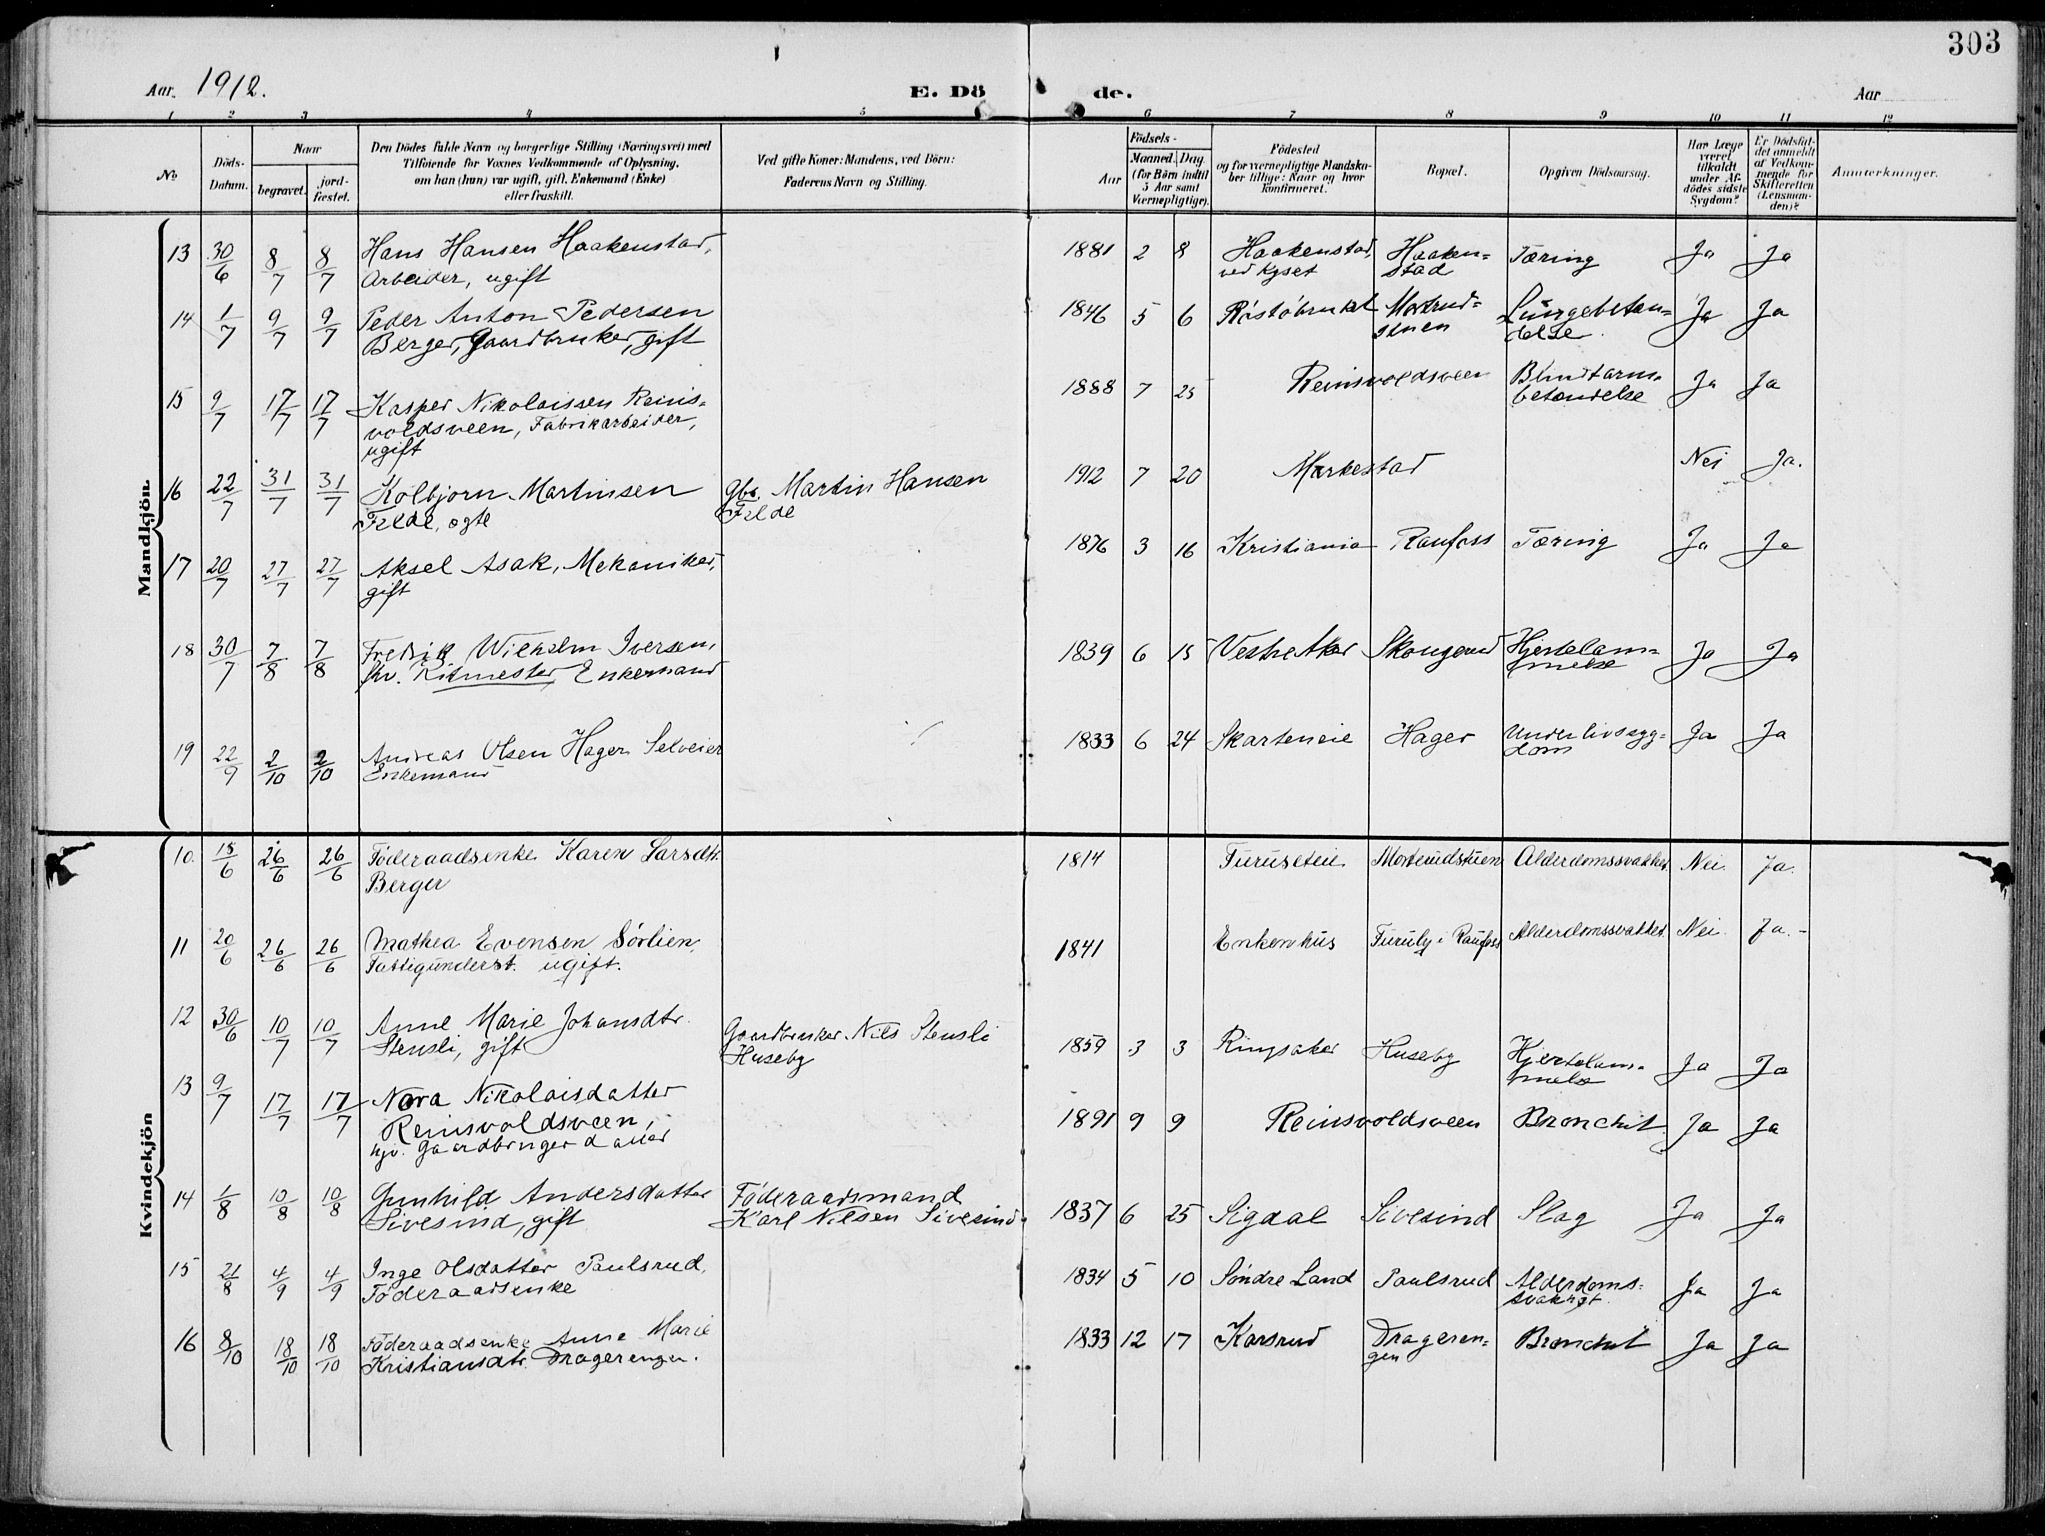 303
Aar 1912.
E. Dö de.
Aar
1 2 3 4 5 6 7 8 9 10 11 12
No.
Döds-Datum.
Naar
begravet.
jord-fæstet.
Den Dödes fulde Navn og borgerlige Stilling (Næringsvei) med
Tilføiende for Voxnes Vedkommende af Oplysning,
om han (hun) var ugift, gift, Enkemand (Enke)
eller fraskilt.
Ved gifte Koner: Mandens, ved Börn:
Faderens Navn og Stilling.
Födsels-
Aar
Maaned. Dag.
(for Börn indtil
5 Aar samt
Værnepligtige).
Födested
og for værnepligtige Mandska-
ber tillige: Naar og hvor
konfirmeret.
Bopæl.
Opgiven Dödsaarsag.
Har Læge
været
tilkaldt
under Af-
dödes sidste
Sygdom?
Er Dödsfal-
det anmeldt
af Vedkom-
mende for
Skifteretten
(Lensman-
den)?
Anmærkninger.
Mandkjön.
13 30/6 8/7 8/7 Hans Hansen Haakenstad, 1881 2 8 Haakenstad, Haaken= Tæring Ja Ja
Arbeider, ugift ved Kyset stad
14 1/7 9/7 9/7 Peder Anton Pedersen 1846 5 6 Røstøbruket Morterud= Lungebetæn= Ja Ja
Berger, Gaardbruker, gift stuen delse.
15 9/7 17/7 17/7 Kasper Nikolaissen Reins= 1888 7 25 Reinsvoldsveen Blindtarms= Ja Ja
voldsveen, Fabrikarbeider, betændelse
ugift
16 22/7 31/7 31/7 Kolbjørn Martinsen Gbr. Martin Hansen 1912 7 20 Markestad Nei Ja.
Felde, ægte Felde
17 20/7 27/7 27/7 Aksel Asak, Mekaniker, 1876 3 16 Kristiania Raufoss Tæring Ja Ja
gift
18 30/7 7/8 7/8 Fredrik Wilhelm Iversen, 1839 6 15 Vestre Aker Skougerud Hjertelam= Ja Ja
fhv. Ritmester, Enkemand melse
19 22/9 2/10 2/10 Andreas Olsen Hager Selveier 1833 6 24 Skarteneie Hager Underlivssyg= Ja Ja
Enkemand dom
Kvindekjön
10. 18/6 26/6 26/6 Føderaadsenke Karen Larsdtr. 1814 Furuseteie Morterudstuen Alderdomssvakhet. Nei. Ja.
Berger
11 20/6 26/6 26/6 Mathea Evensen Sørlien, 1841 Enkenhus Furuly i Raufoss Alderdomssvakhet. Nei. Ja.-
Fattigunderst. ugift.
12 30/6 10/7 10/7 Anne Marie Johansdtr. Gaardbruker Nils Stensli 1859 3 3 Ringsaker Huseby Hjertelam= Ja Ja
Stensli, gift Huseby melse
13 9/7 17/7 17/7 Nora Nikolaisdatter 1891 9 9 Reinsvoldsveen Bronchit Ja Ja
Reinsvoldsveen,
hjv. Gaardbrugerdatter
14 1/8 10/8 10/8 Gunhild Andersdatter Føderaadsmand 1837 6 25 Sigdal Sivesind Slag Ja Ja
Sivesind, gift Karl Nilsen Sivesind.
15 21/8 4/9 4/9 Inge Olsdatter Paulsrud, 1834 5 10 Søndre Land Paulsrud Alderdoms= Ja Ja
Føderaadsenke svakhet.
16 8/10 18/10 18/10 Føderaadsenke Anne Marie 1833 12 17 Karsrud Drageren= Bronchit Ja Ja
Kristiansdtr. Dragerengen. gen